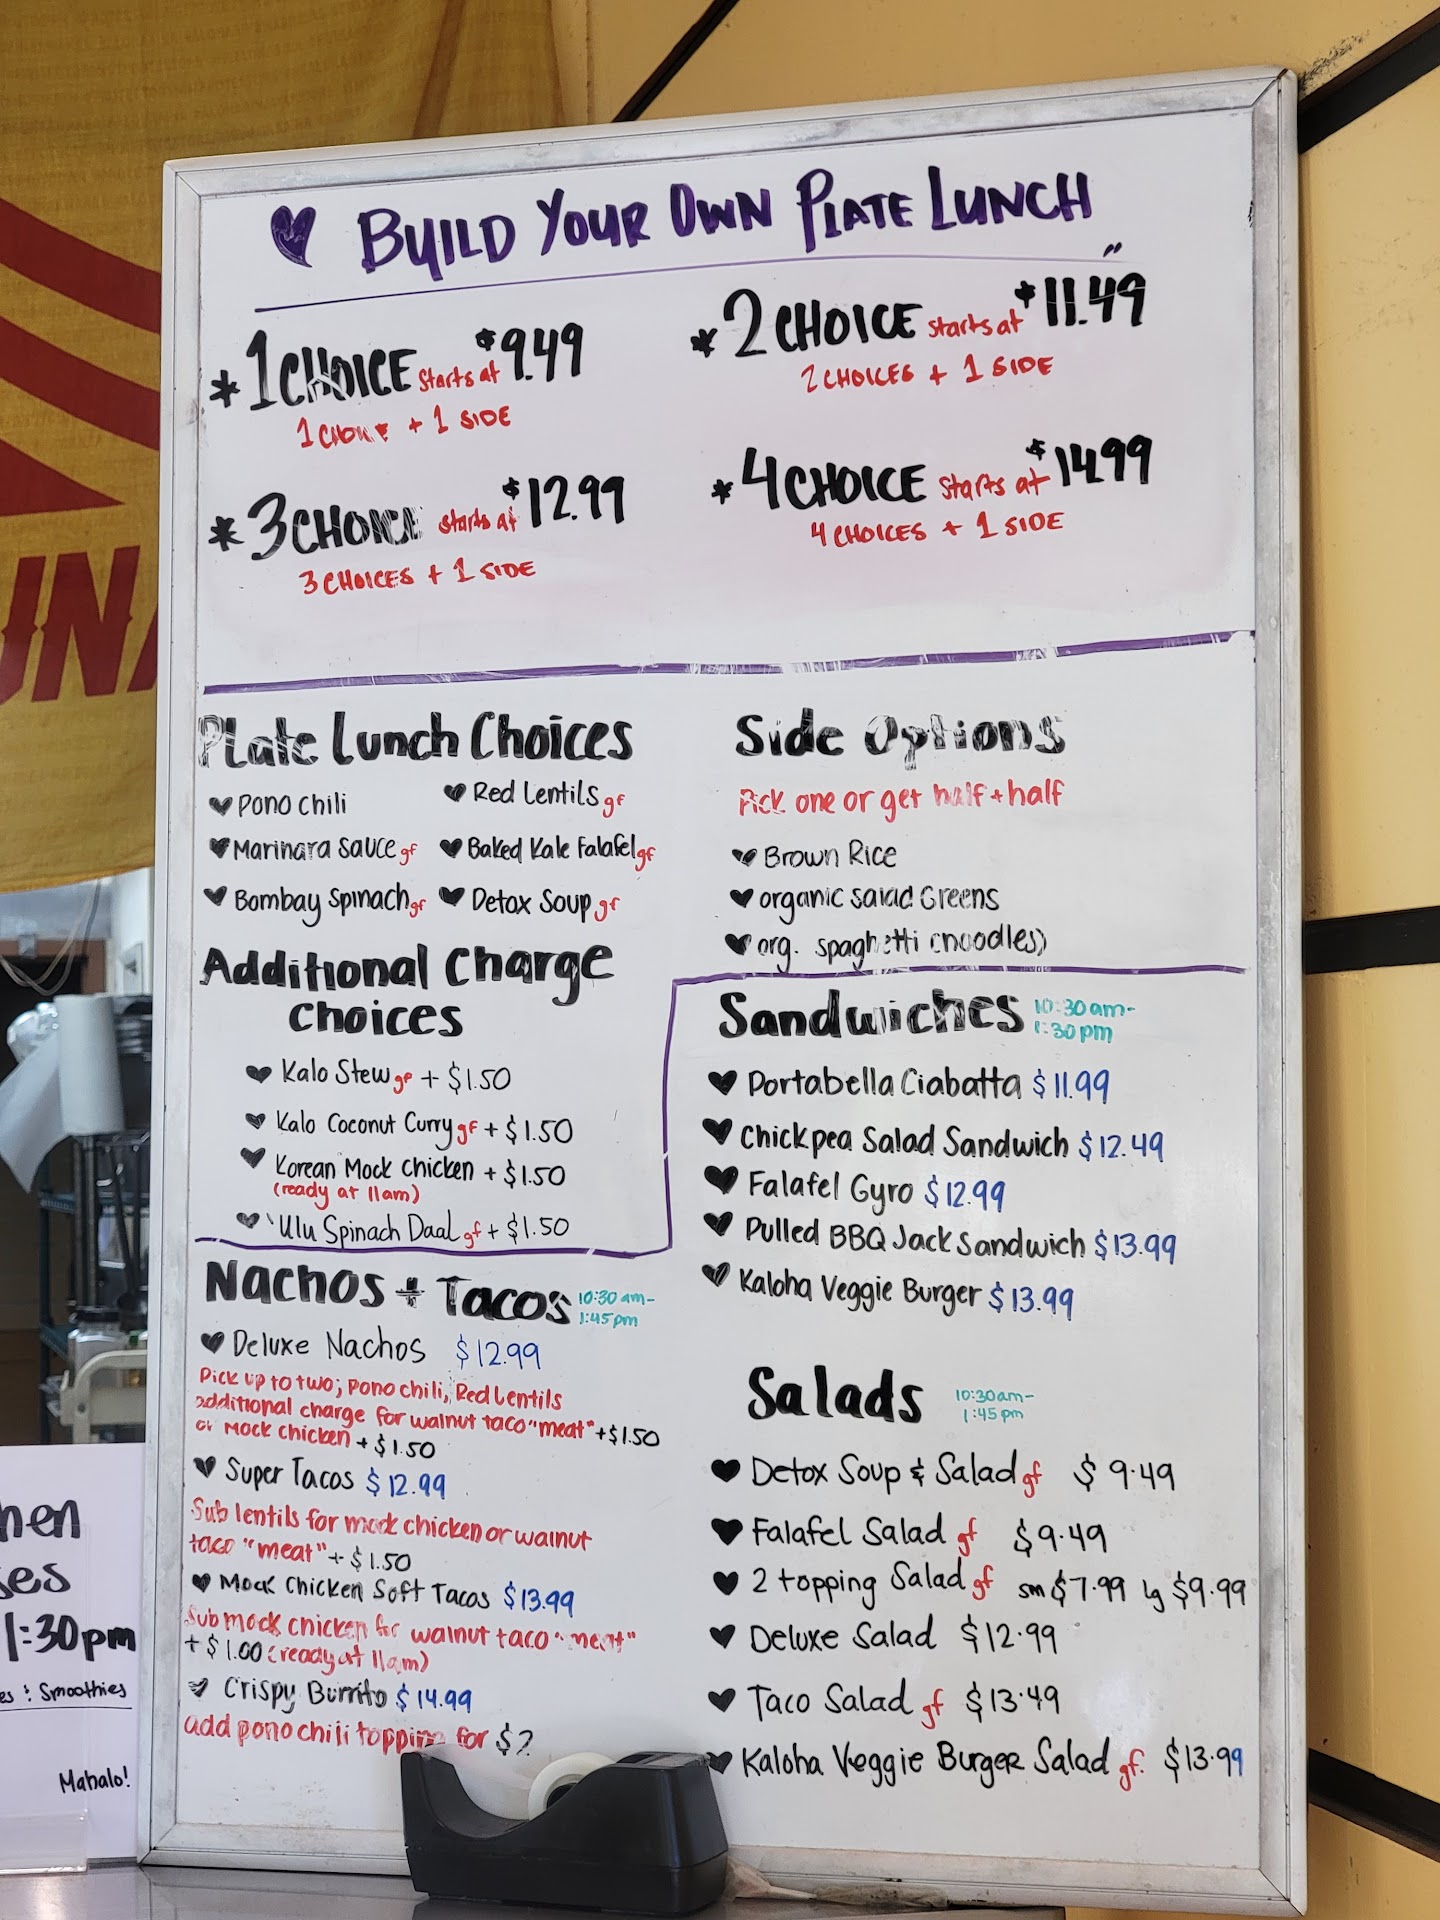 BUILD YOUR OWN PLATE LUNCH
* 1 CHOICE starts at $9.49
1 CHOICE + 1 SIDE
* 2 CHOICE starts at $11.49
2 CHOICES + 1 SIDE
* 3 CHOICE starts at $12.99
3 CHOICES + 1 SIDE
* 4 CHOICE starts at $14.99
4 CHOICES + 1 SIDE
Plate Lunch Choices
Pono Chili
Red Lentils gf
Marinara Sauce gf
Baked Kale Falafel gf
Bombay Spinach gf
Detox Soup gf
Additional Charge
Choices
Kalo Stew gf + $1.50
Kalo Coconut Curry gf + $1.50
Korean Mock Chicken + $1.50
(ready at 11am)
'Ulu Spinach Daal gf + $1.50
Side Options
Pick one or get half + half
Brown Rice
organic Salad Greens
org. spaghetti (noodles)
Sandwiches 10:30am-
1:30pm
Portabella Ciabatta $11.99
Chickpea Salad Sandwich $12.49
Falafel Gyro $12.99
Pulled BBQ Jack Sandwich $13.99
Kaloha Veggie Burger $13.99
Nachos + Tacos 10:30am-
1:45pm
Deluxe Nachos $12.99
Pick up to two; pono chili, Red Lentils
additional charge for walnut taco "meat" +$1.50
or Mock chicken + $1.50
Super Tacos $12.99
Sub lentils for mock chicken or walnut
taco "meat" + $1.50
Mock Chicken Soft Tacos $13.99
Sub mock chicken for walnut taco "meat"
+ $1.00 (ready at 11am)
Crispy Burrito $14.99
add pono chili topping for $2
Salads 10:30am-
1:45pm
Detox Soup & Salad gf $9.49
Falafel Salad gf $9.49
2 topping Salad gf sm $7.99 lg $9.99
Deluxe Salad $12.99
Taco Salad gf $13.49
Kaloha Veggie Burger Salad gf. $13.99
UNA
hen
es
1:30pm
es & Smoothies
Mahalo!